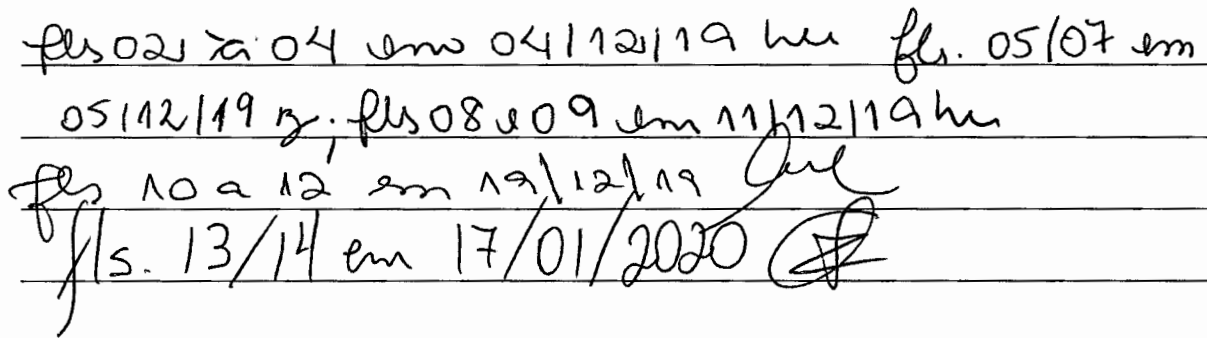 fls 02 à 04 em 04/12/19 fls. 05/07 em
05/12/19 ; fls 08 e 09 em 11/12/19
fls 10 a 12 em 19/12/19
fls. 13/14 em 17/01/2020